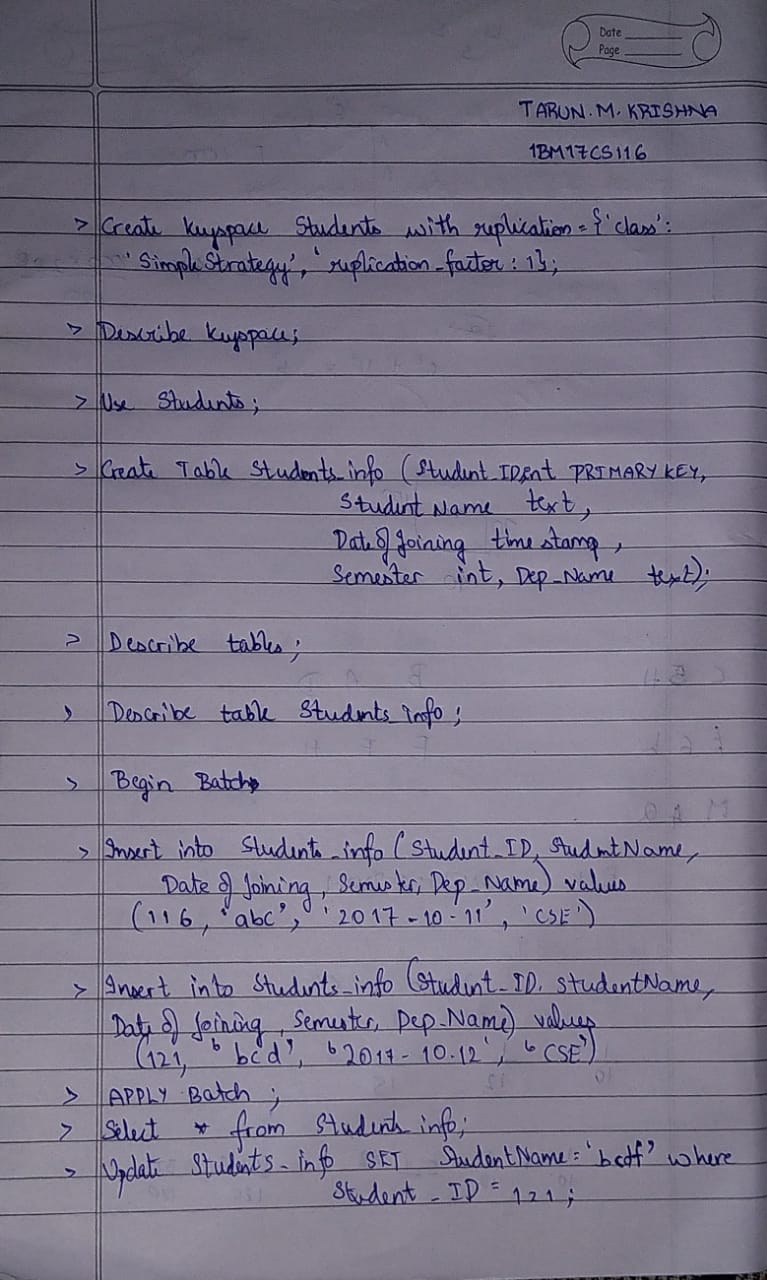 Date
Page
TARUN. M. KRISHNA
1BM17CS116
> Create Keyspace Students with replication = {'class':
'Simple Strategy', 'replication_factor : 1};
> Describe Keyspaces;
> Use Students;
> Create Table Students_info (Student_ID int PRIMARY KEY,
Student Name text,
Date of Joining time stamp,
Semester int, Dep_Name text);
> Describe tables;
> Describe table Students_info;
> Begin Batch
> Insert into Students_info (Student_ID, StudentName,
Date of Joining, Semester, Dep_Name) values
(116, 'abc', '2017-10-11', 'CSE')
> Insert into Students_info (Student_ID, StudentName,
Date of Joining, Semester, Dep_Name) values
(121, 'bcd', '2017-10-12', 'CSE')
> APPLY Batch ;
> Select * from Students_info;
> Update Students_info SET StudentName = 'bcdf' where
Student_ID = 121;